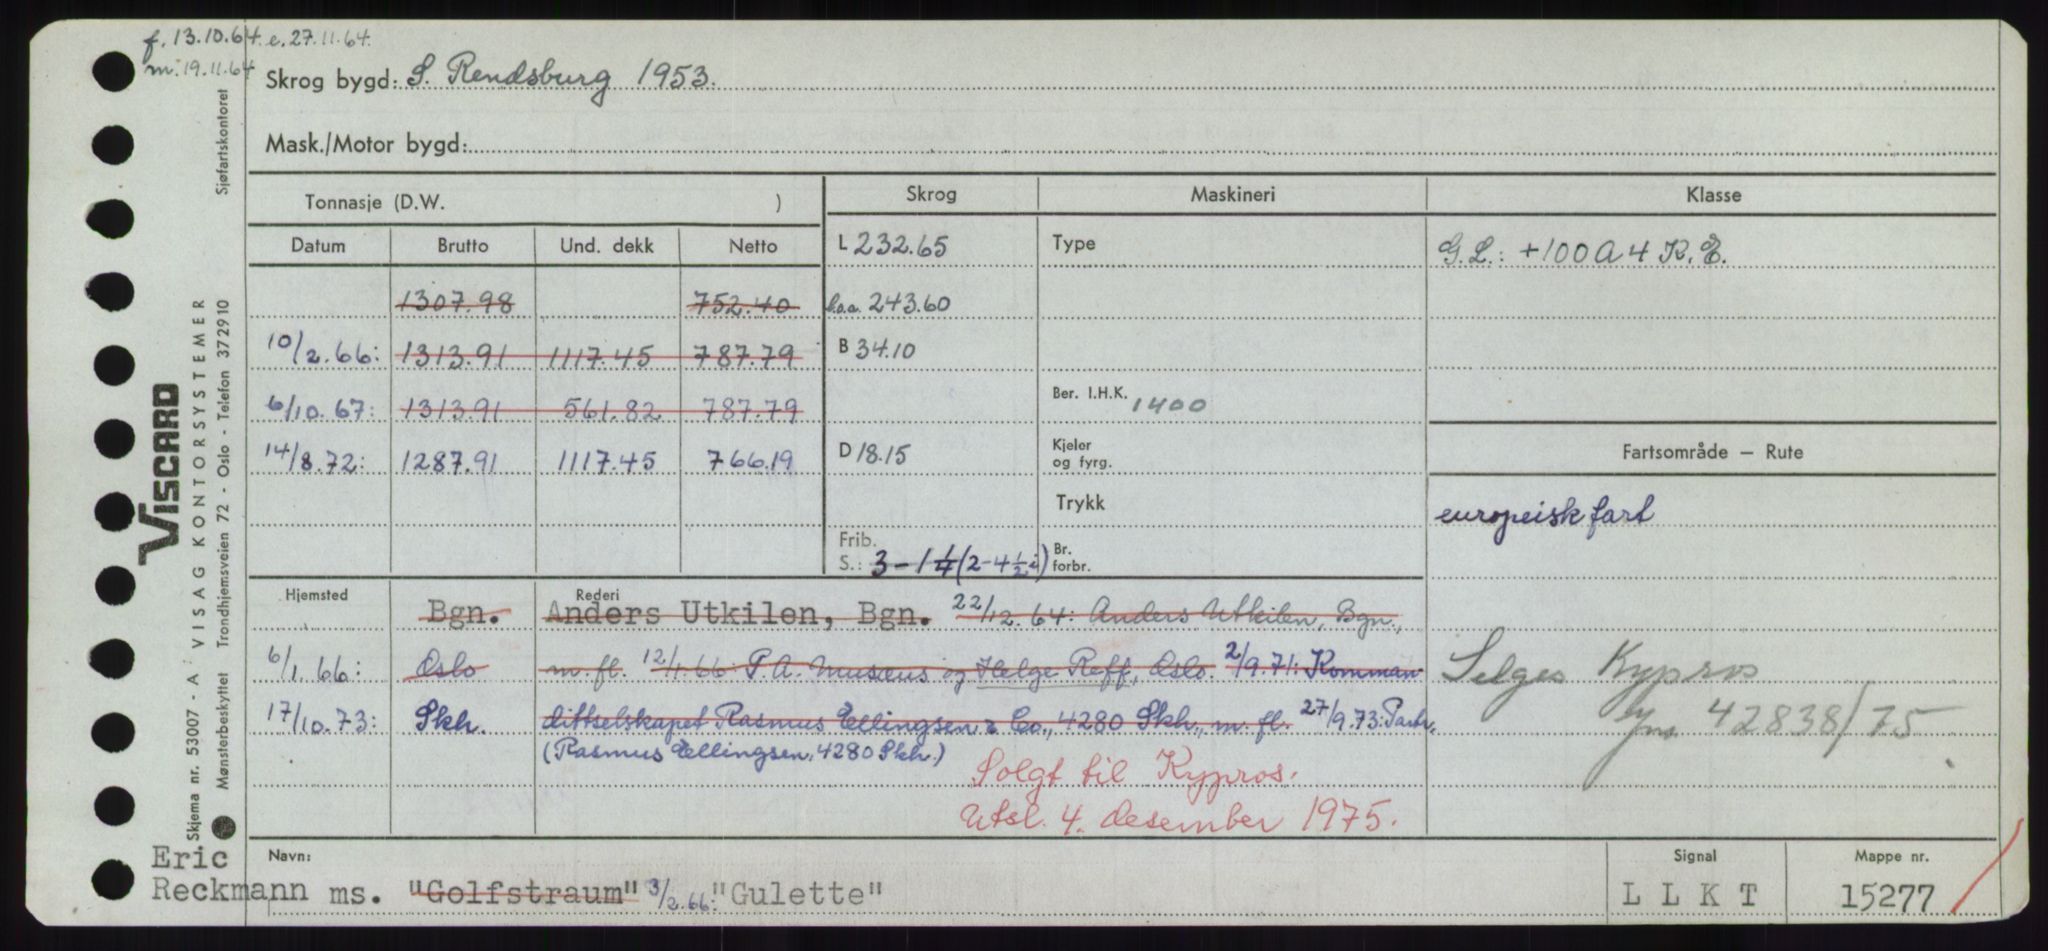 f. 13.10.64. e. 27.11.64.
m. 19.11.64
Skrog bygd: S. Rendsburg 1953.
Mask./Motor bygd:
Tonnasje (D.W. ) Skrog Maskineri Klasse
Datum Brutto Und. dekk Netto L 232.65 Type G.L.: +100A4 K.E.
1307.98 752.40 l.o.a. 243.60
10/2.66: 1313.91 1117.45 787.79 B 34.10
6/10.67: 1313.91 561.82 787.79 Ber. I.H.K. 1400
14/8.72: 1287.91 1117.45 766.19 D 18.15 Kjeler og fyrg. Fartsområde — Rute
Trykk europeisk fart
Frib.
S.: 3-1¼ (2-4½ i) Br. forbr.
Hjemsted Rederi
Bgn. Anders Utkilen, Bgn. 22/12.64: Anders Utkilen, Bgn.,
6/1.66: Oslo m. fl. 12/1.66: P.A. Musæus og Helge Reff, Oslo. 2/9.71: Komman-
17/10.73: Skh. dittselskapet Rasmus Ellingsen & Co., 4280 Skh., m. fl. 27/9.73: Partr.
(Rasmus Ellingsen, 4280 Skh.)
Selges Kypros
42838/75
Solgt til Kypros.
Utsl. 4. desember 1975.
Eric
Reckmann
Navn: ms. "Golfstraum" 3/2.66: "Gulette"
Signal LLKT
Mappe nr. 15277
Sjøfartskontoret
VISCARD
A VISAG KONTORSYSTEMER
Trondhjemsveien 72 - Oslo - Telefon 372910
Skjema nr. 53007 -
Mønsterbeskyttet